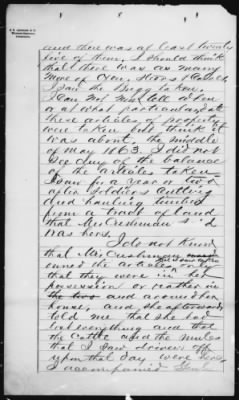 and there was at least twenty
five of them. I should think
that there was as many
more of Cows, Steers & Calves.
I saw the Buggy taken.
I can not now tell when
or at what particular date
these articles of property
were taken but think it
was about the middle
of May 1863. I did not
see any of the balance
of the articles taken.
I saw for a year or two
after soldiers cutting
and hauling timber
from a tract of land
that Mrs Cushman s'd
was hers.
I do not know
that Mrs Cushman
owned the articles only
that they were in her
possession or rather in
the two and around her
house, and she afterwards
told me that she had
lost everything and that
the cattle and the mules
that I saw driven off
upon that day were hers.
I accompanied Genl